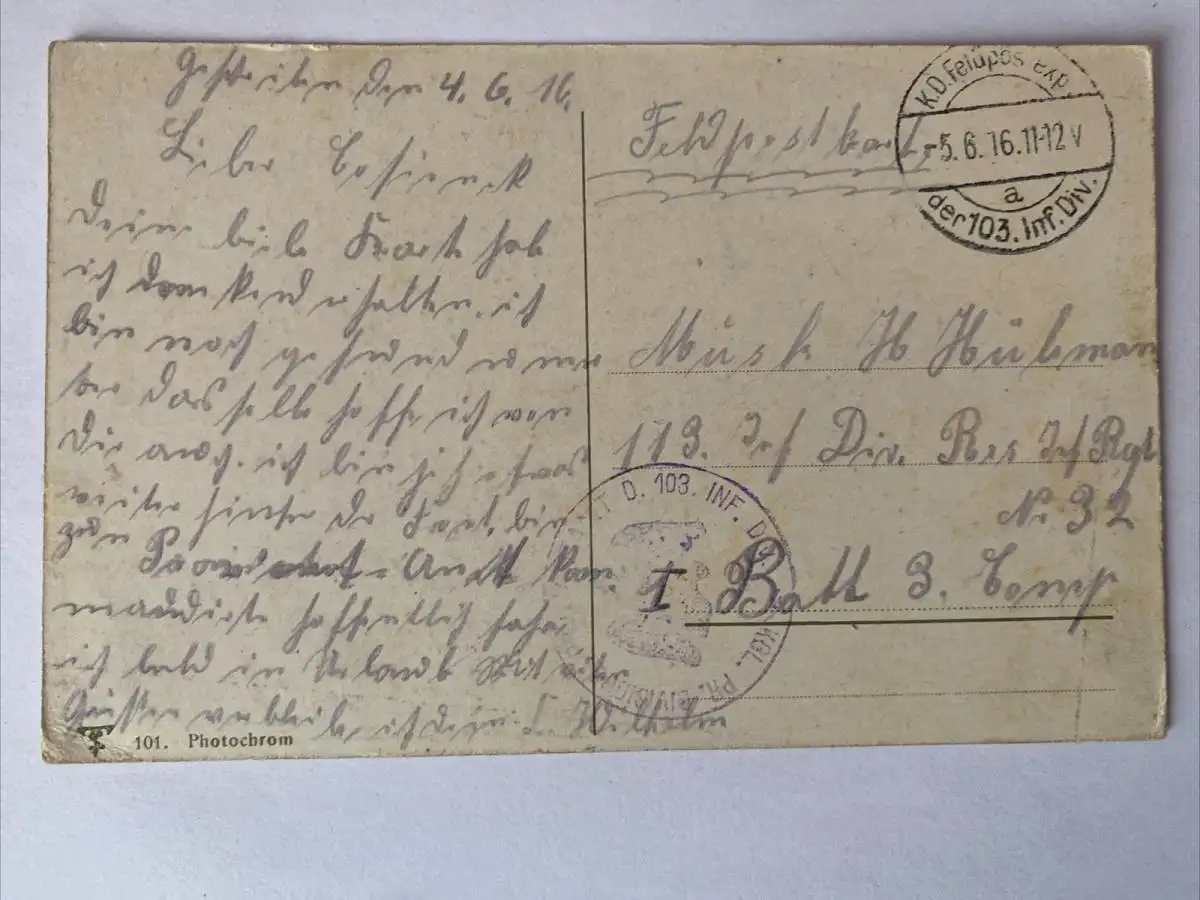 Geschrieben den 4. 6. 16.
Lieber
Deine liebe Karte hab
ich dankend erhalten, ich
bin noch gesund u mun
ter dasselbe hoffe ich von
Dir auch. ich bin jetz etwas
weiter hinter der Front, bin
zum
Proviant-Amt kom
mandirte hoffentlich fahre
ich bald in Urlaub Mit
Grüßen verbleibe ich dein F. Wilhelm
101. Photochrom
Feldpostkarte
K.D. Feldpostexp.
-5.6.16.11-12V
a
der 103. Inf. Div.
Musk H Hülsmann
113. Inf Div. Res Inf Rgt
Nr 32
I Batt 3. Comp
D. 103. INF. KGL. PR.